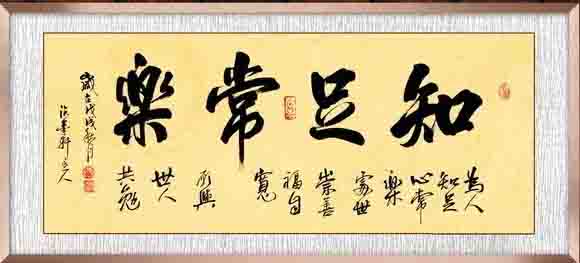 知足常樂
為人
知足
心常
樂
處世
崇善
福自
寬
與
世人
共勉
歲在戊戌月
墨軒主人